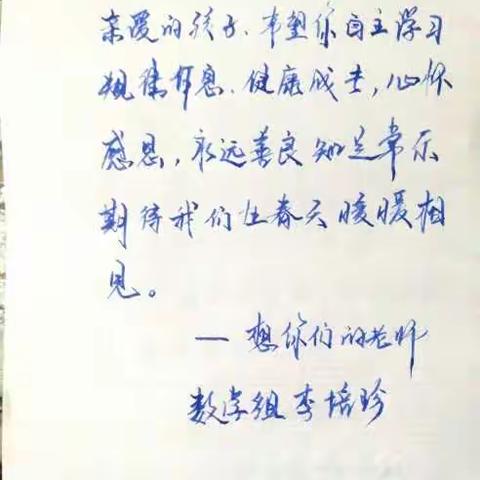 亲爱的孩子、希望你自主学习
规律作息、健康成长，心怀
感恩，永远善良知足常乐
期待我们在春天暖暖相
见。
— 想你们的老师
数学组 李培珍